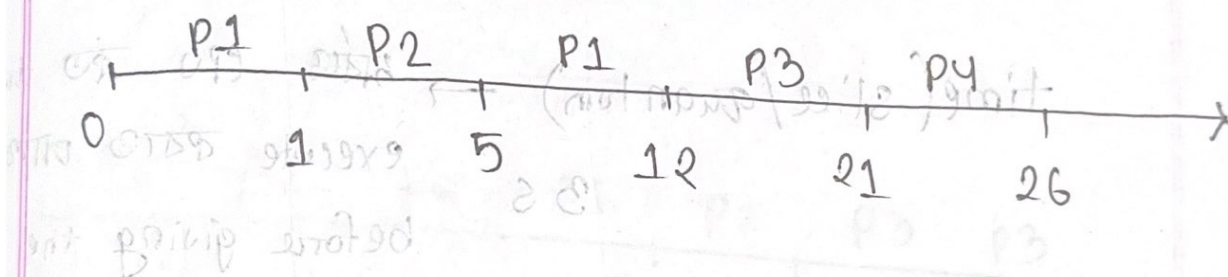 P1 P2 P1 P3 P4
0 1 5 12 21 26